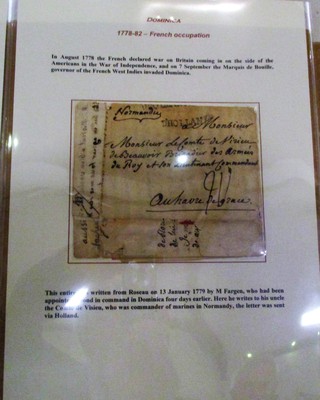 DOMINICA
1778-82 – French occupation
In August 1778 the French declared war on Britain coming in on the side of the
Americans in the War of Independence, and on 7 September the Marquis de Bouille,
governor of the French West Indies invaded Dominica.
Normandie
A Monsieur
Monsieur Le Comte de Visieu
de Beauvoir des Armées
du Roy et son Lieutenant Commandant
au havre de grace
This entire written from Roseau on 13 January 1779 by M Fargen, who had been
appointed second in command in Dominica four days earlier. Here he writes to his uncle
the Comte de Visieu, who was commander of marines in Normandy, the letter was sent
via Holland.